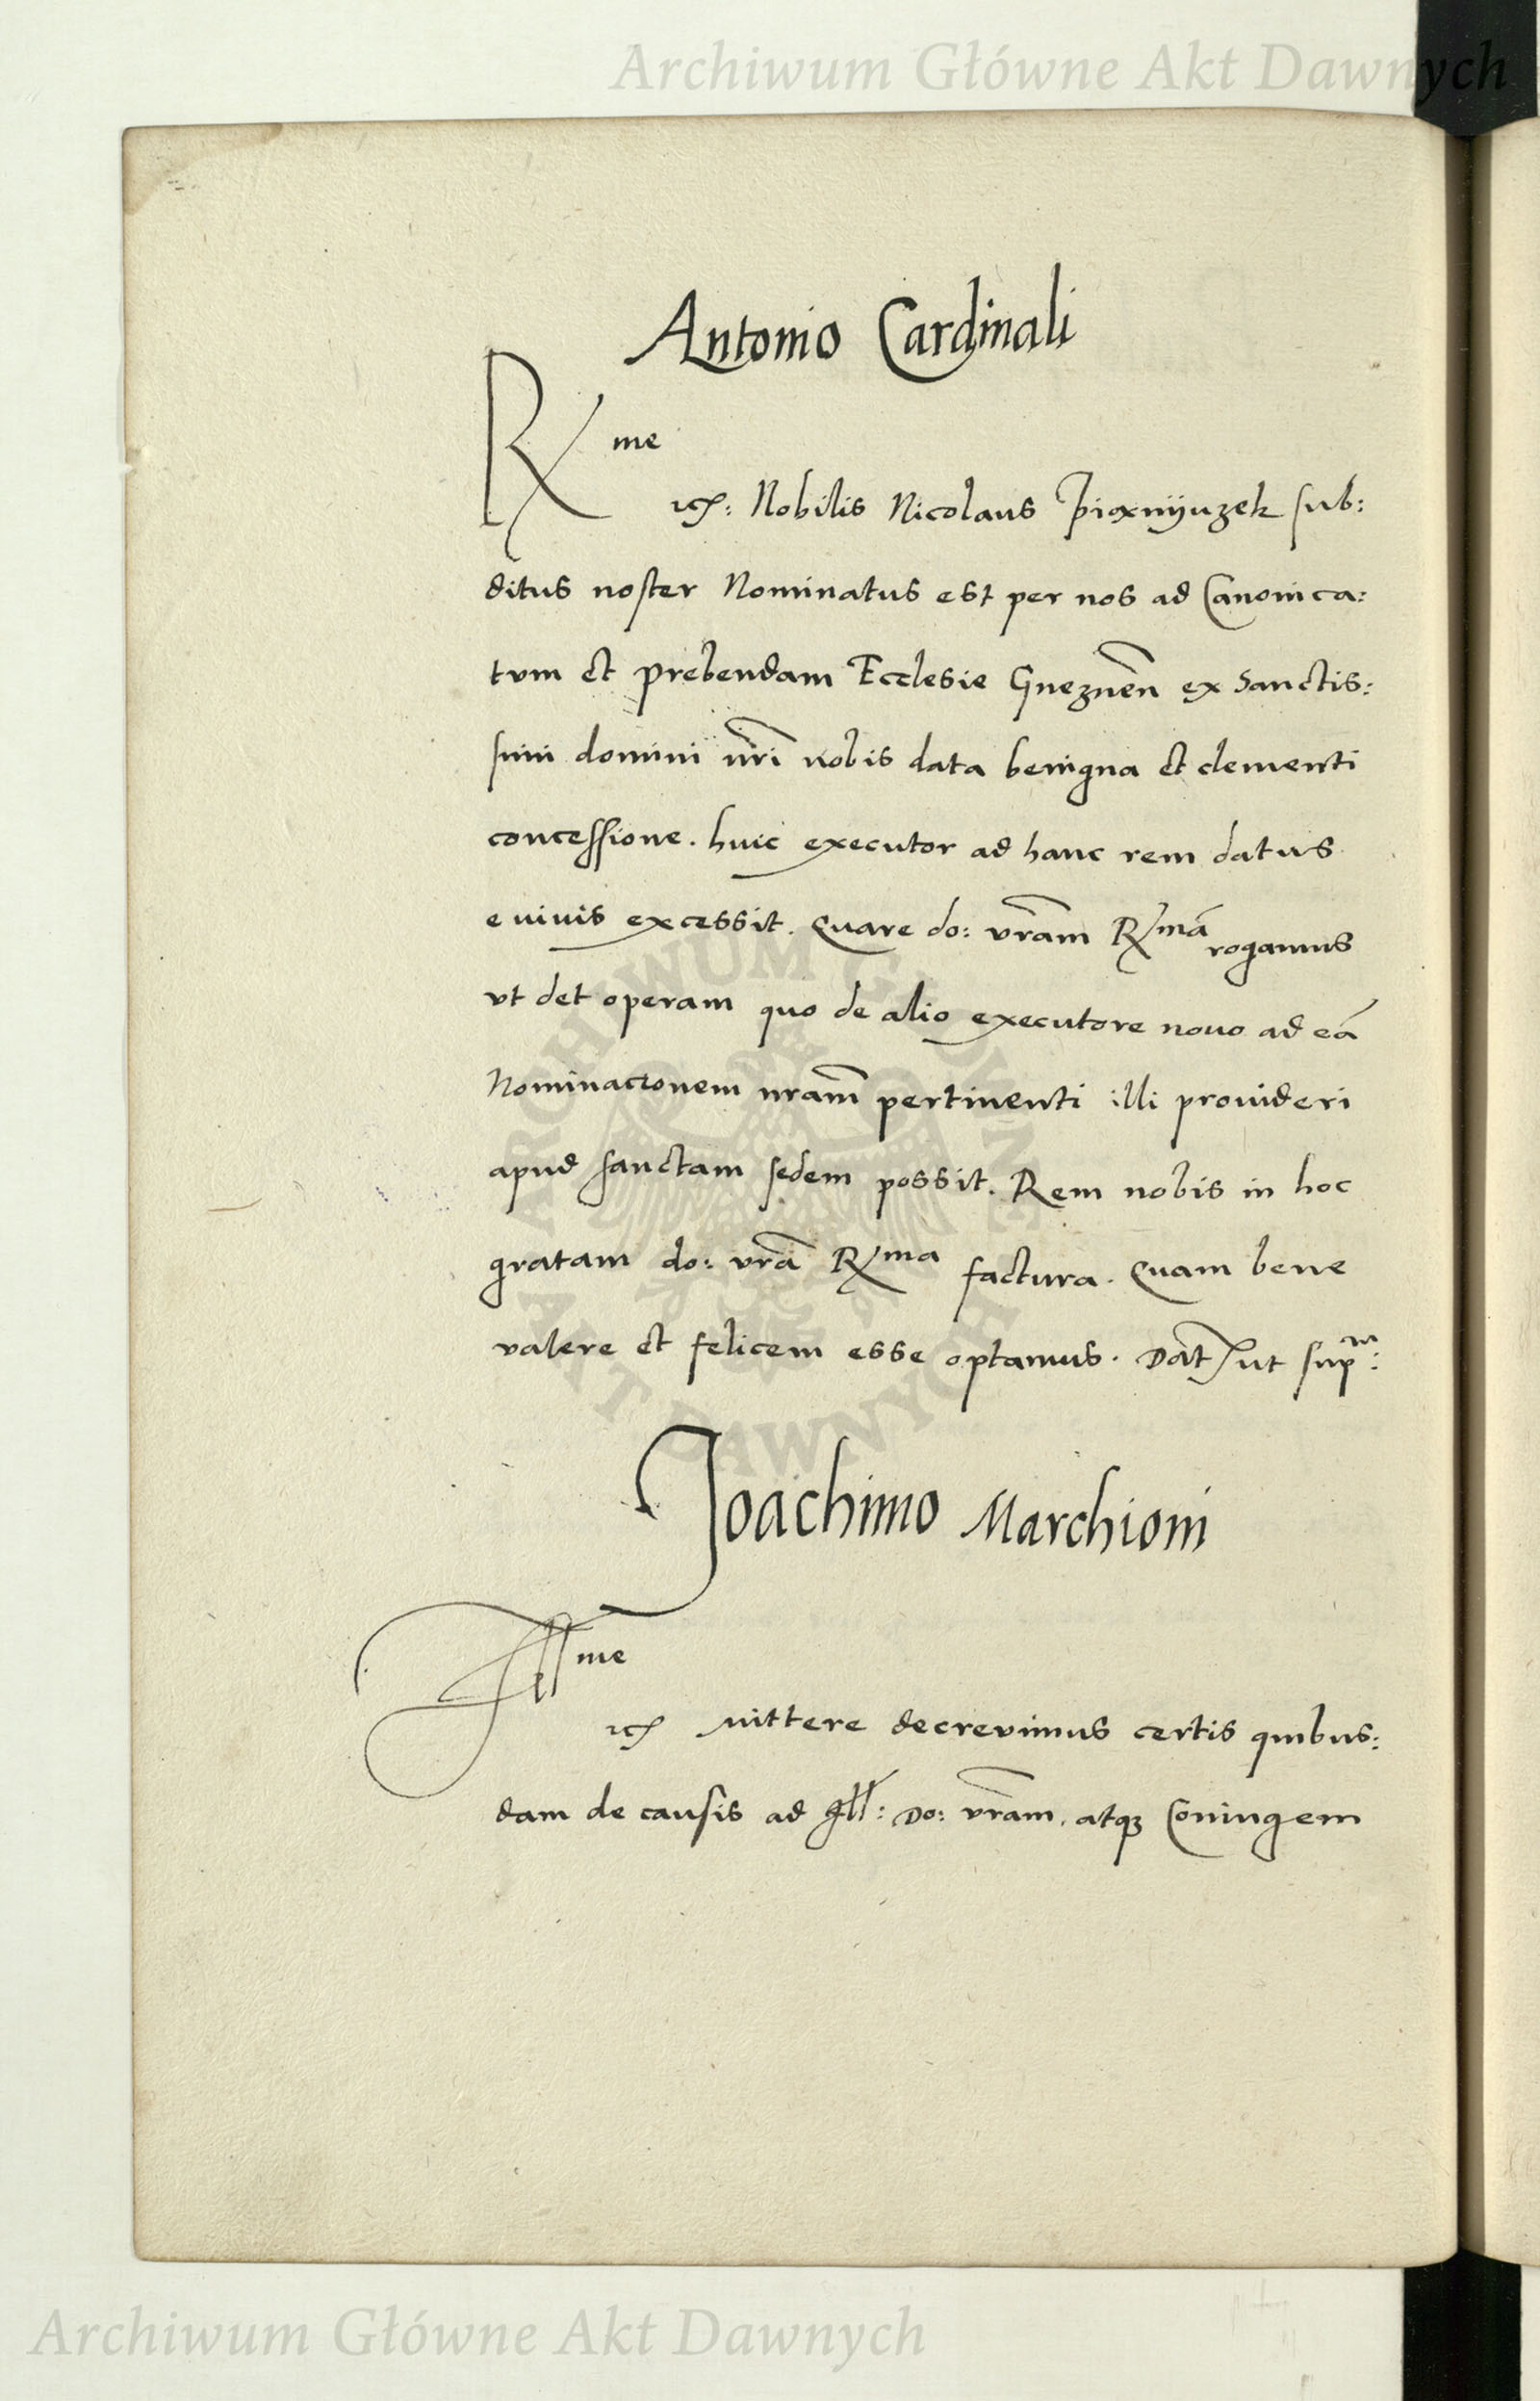 Archiwum Główne Akt Dawnych
Antonio Cardinali
R me
Nobilis Nicolaus sub:
ditus noster Nominatus est per nos ad Canonica:
tum et prebendam Ecclesie Gneznen̄ ex Sanctis:
simi domini nr̄i nobis data benigna et clementi
concessione. huic executor ad hanc rem datus
e vivis excessit. Quare do: vr̄am Rmā rogamus
vt det operam quo de alio executore novo ad eā
Nominacionem nram̄ pertinenti illi provideri
apud sanctam sedem possit. Rem nobis in hoc
gratam do: vrā Rma factura. Quam bene
valere et felicem esse optamus. Dat ut sup:
Joachimo Marchioni
Ill me
Mittere decrevimus certis quibus:
dam de causis ad Ill: Do: vr̄am. atqз Coniugem
ARCHIWUM GŁÓWNE
AKT DAWNYCH
Archiwum Główne Akt Dawnych